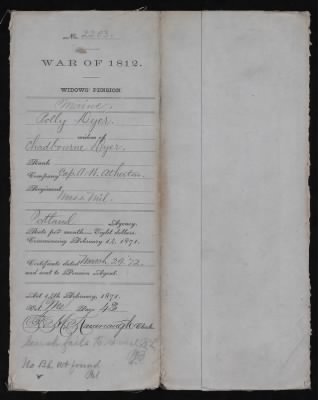 No. 2203.
WAR OF 1812.
WIDOWS PENSION
Maine.
Polly Dyer.
widow of
Chadbourne Dyer.
Rank
Company Cap. A. W. Atherton
Regiment,
Mass Mil.
Portland Agency.
Rate per month—Eight dollars.
Commencing February 14, 1871.
Certificate dated March 29 '72.
and sent to Pension Agent.
Act 14th February, 1871.
Vol. Page 43
Kavenaugh Clerk
Search fails to
No B.L. Wt found